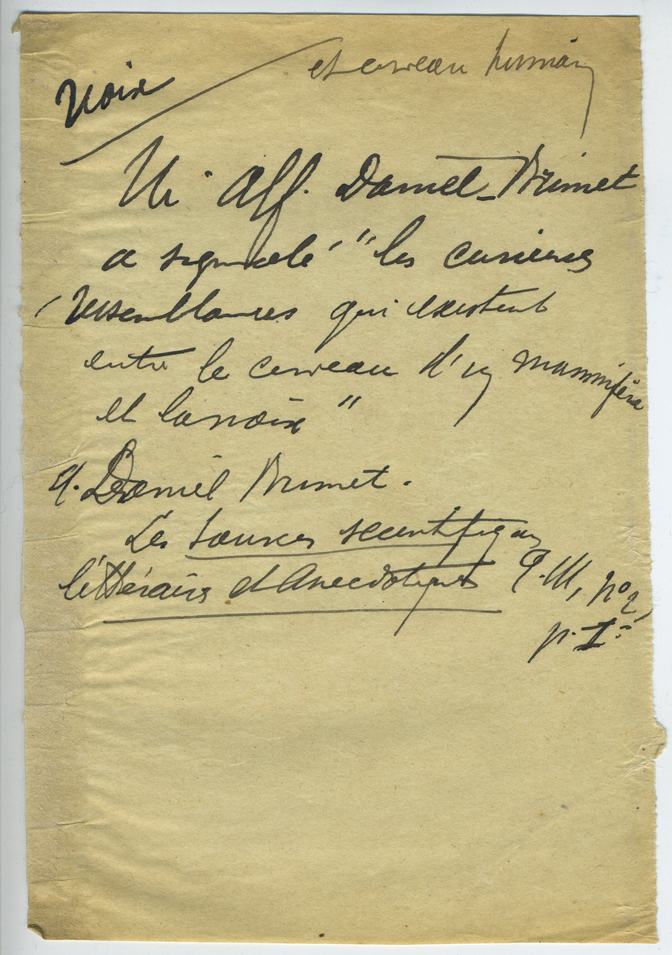 Noix
et cerveau humain
Mr Alf. Daniel-Brunet
a signalé "les curieuses
ressemblances qui existent
entre le cerveau d'un mammifère
et la noix"
A. Daniel Brunet.
Les Sources scientifiques
littéraires et Anecdotiques T. III, no 2,
p. I